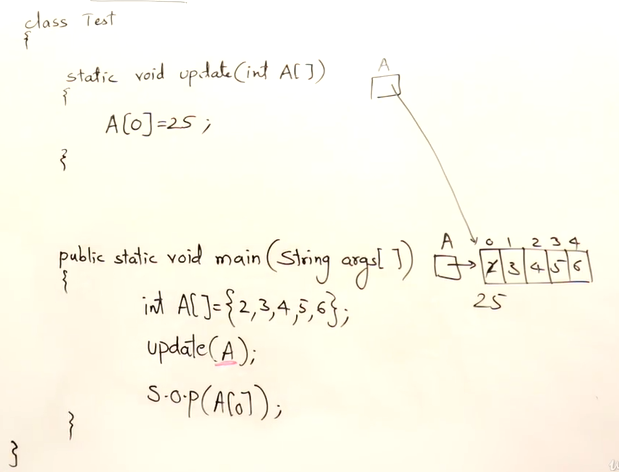 class Test
{
static void update(int A[])
{
A[0]=25;
}
public static void main(String args[])
{
int A[]={2,3,4,5,6};
update(A);
S.o.p(A[0]);
}
}
A
A
0 1 2 3 4
2 3 4 5 6
25